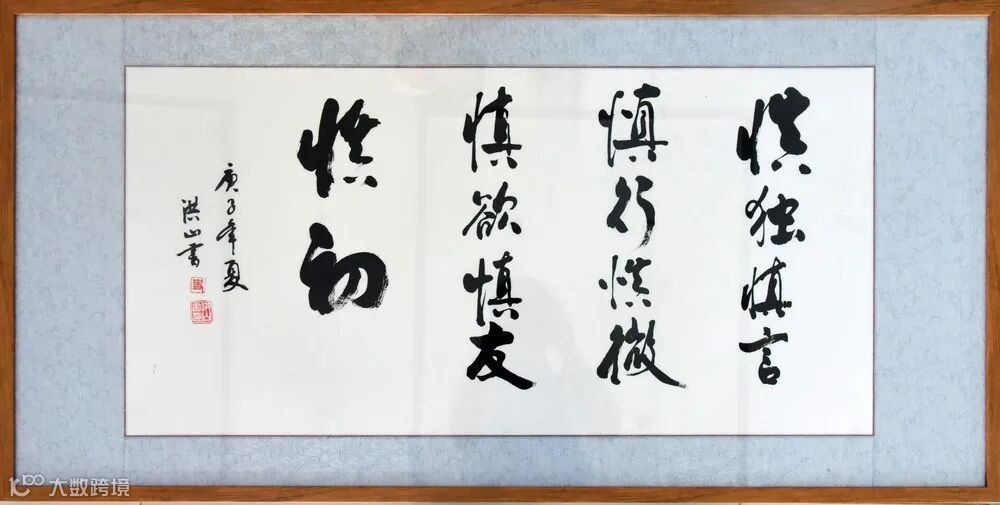 慎独慎言
慎行慎微
慎欲慎友
慎初
庚子年夏
洪山书
大数跨境